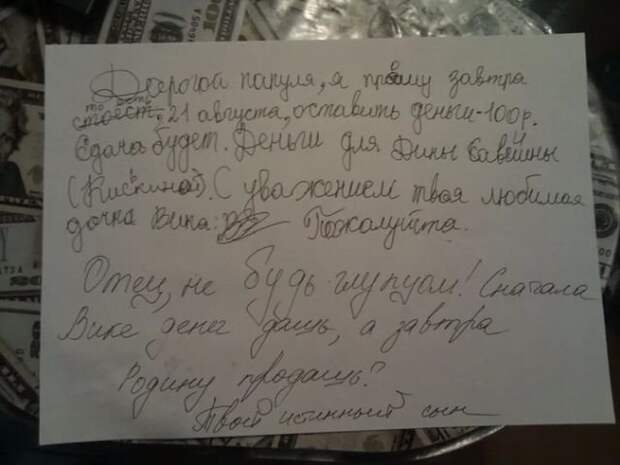 Дорогой папуля, я прошу завтра
то есть, 21 августа, оставить деньги-100р.
Сдача будет. Деньги для Дины Савельны
(Кискиной). С уважением твоя любимая
дочка Вика: Пожалуйста.
Отец, не будь глупцом! Сначала
Вике денег дашь, а завтра
Родину продашь?
Твой истинный сын